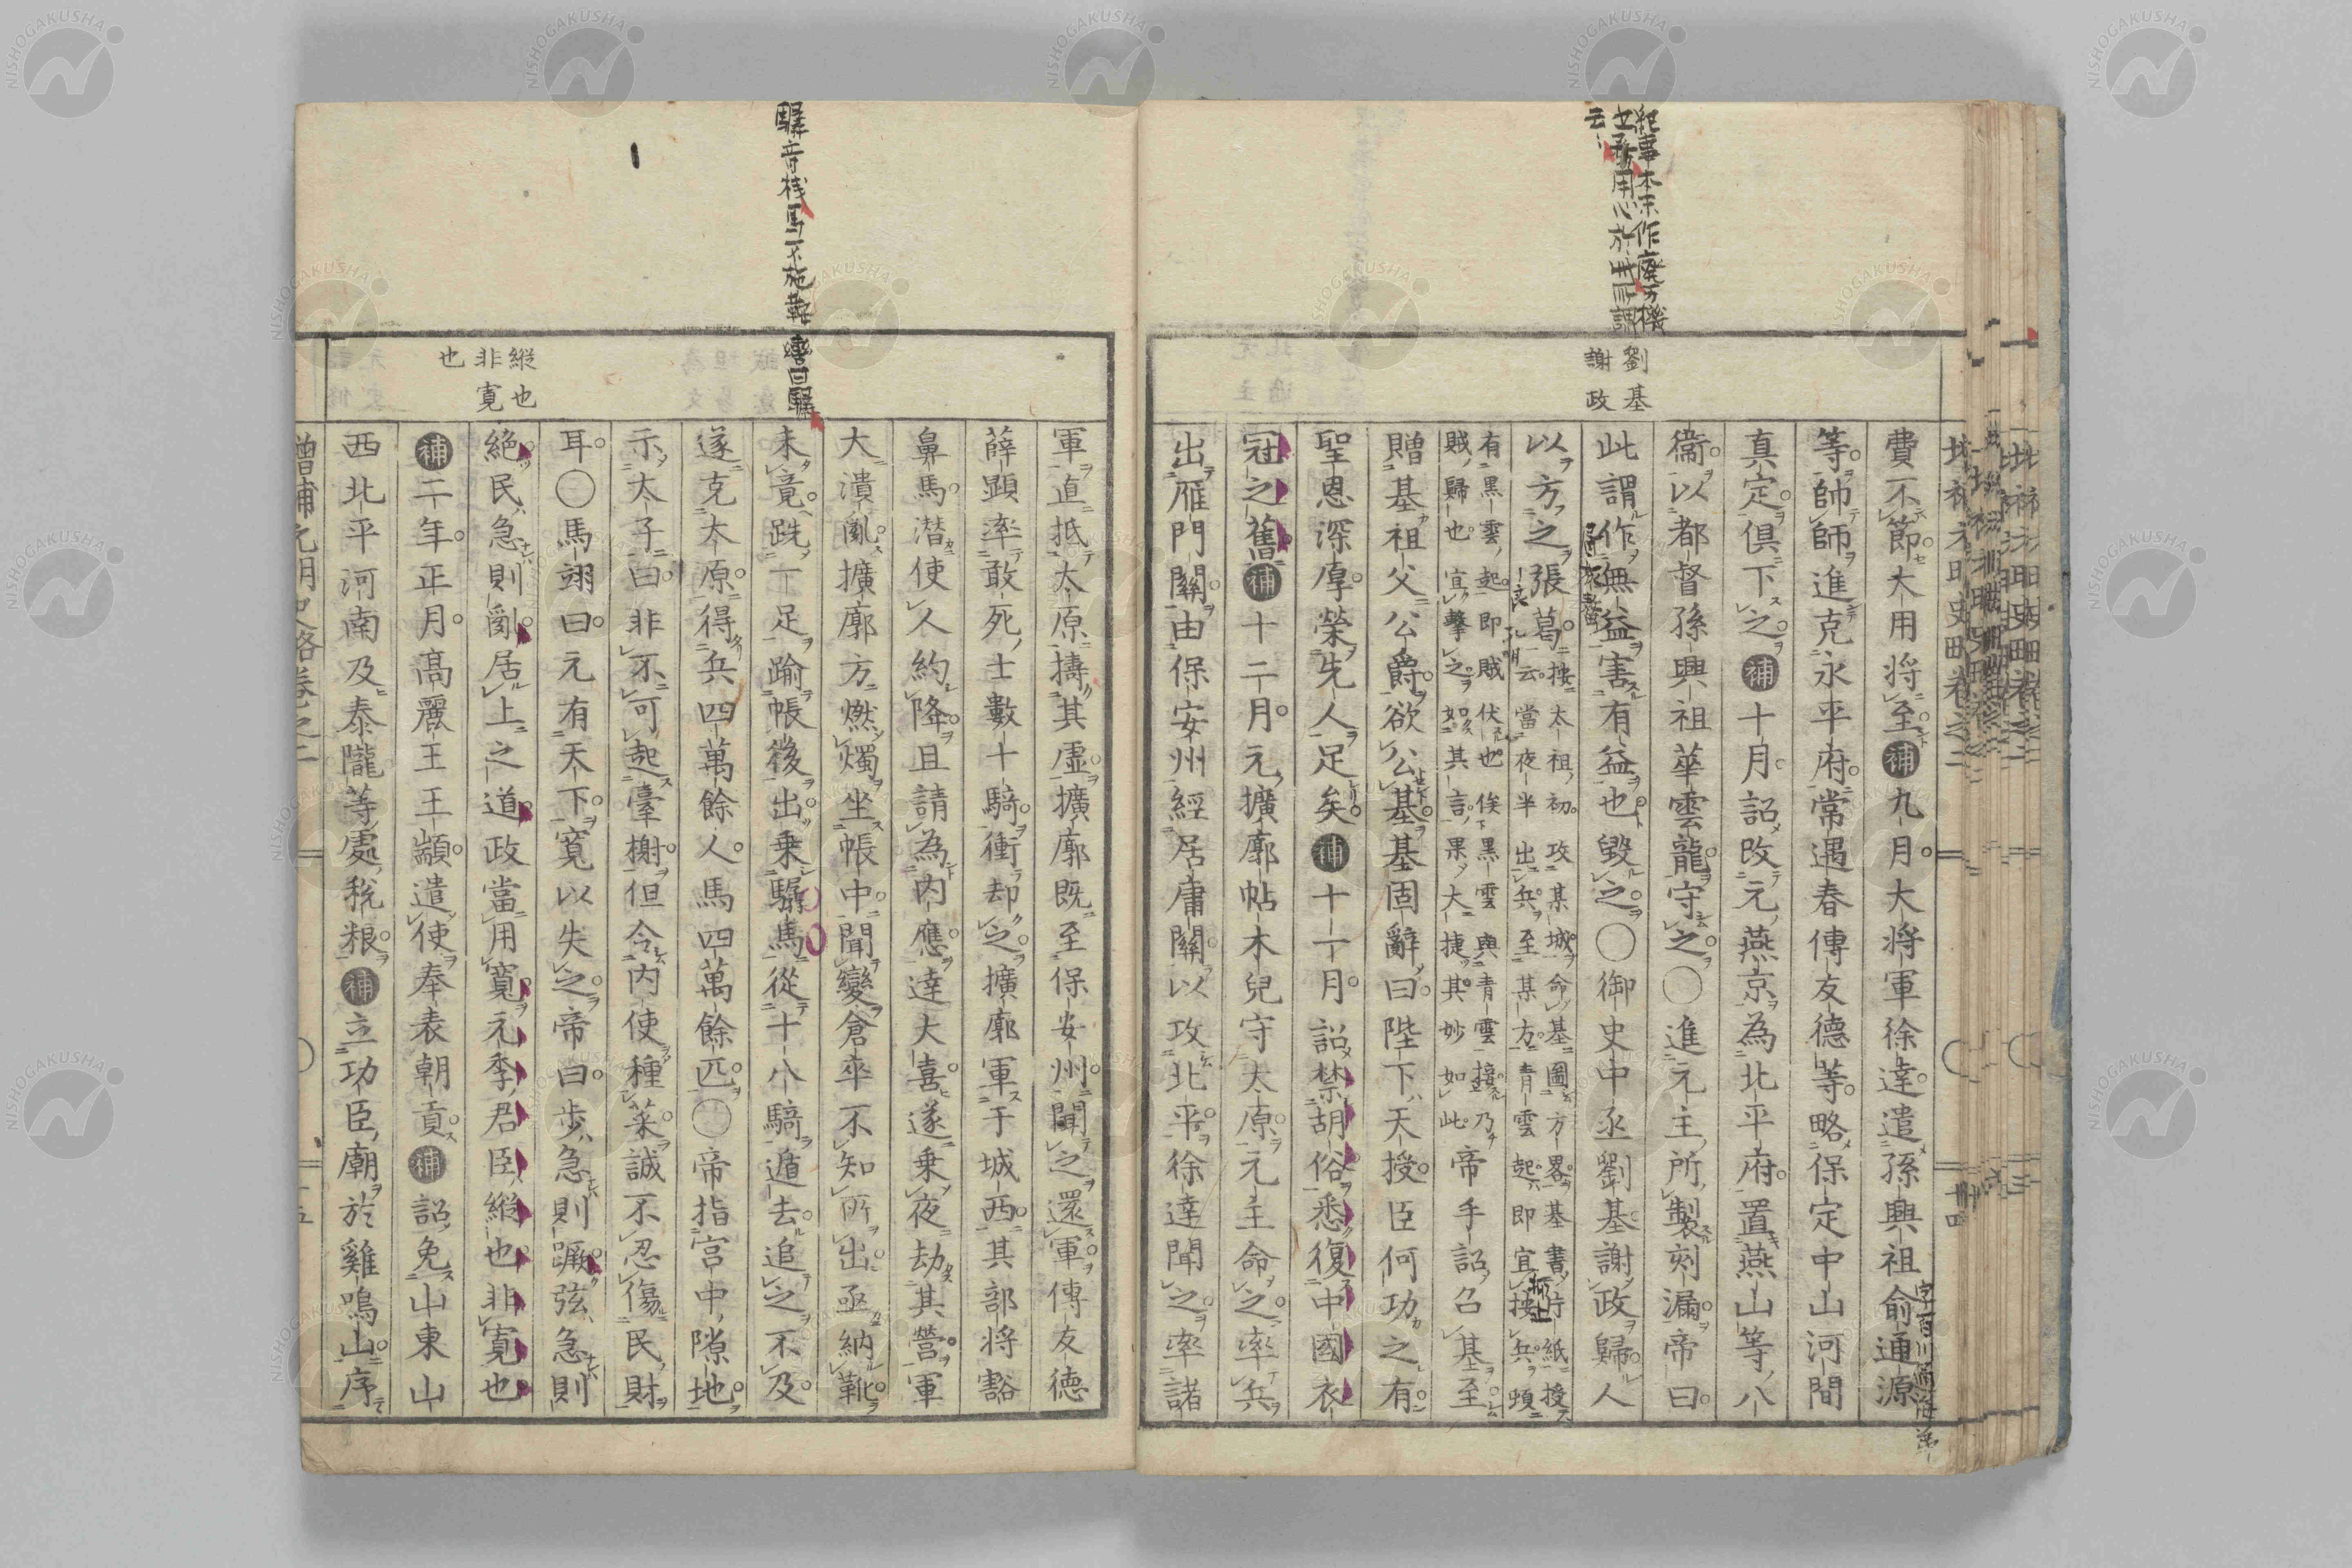 紀事本末作廢万機
之務用心於此所謂
云々
劉基
謝政
費不節大用将至補九月大将軍徐達遣孫興祖俞通源
等帥師進克永平府常遇春傅友德等略保定中山河間
真定俱下之補十月詔改元燕京為北平府置燕山等八
衞以都督孫興祖華雲龍守之〇進元主所製刻漏帝曰
此謂作無益害有益也毀之〇御史中丞劉基謝政歸人
以方之張葛云按太祖初攻某城命基圖方畧基書片紙授
當夜半出兵至某方青雲起即宜按兵頃
有黒雲起即賊伏也俟黒雲與青雲接乃
賊歸也宜撃之如其言果大捷其妙如此帝手詔召基至
贈基祖父公爵欲公基基固辭曰陛下天授臣何功之有
聖恩深厚榮先人足矣補十一月詔禁胡俗悉復中國衣
冠之舊補十二月元擴廓帖木兒守太原元主命之率兵
出雁門關由保安州經居庸關以攻北平徐達聞之率諸
驏音棧馬不施鞍轡曰驏
縦也
非寛
也
軍直抵太原擣其虚擴廓既至保安州聞之還軍傅友徳
薛顕率敢死士數十騎衝却之擴廓軍于城西其部将豁
鼻馬潜使人約降且請為内應達大喜遂乗夜劫其營軍
大潰亂擴廓方燃燭坐帳中聞變倉卒不知所出亟納靴
未竟跣一足踰帳後出乗驏馬從十八騎遁去追之不及
遂克太原得兵四萬餘人馬四萬餘匹〇帝指宮中隙地
示太子曰非不可起臺榭但令内使種菜誠不忍傷民財
耳〇馬翊曰元有天下寛以失之帝曰歩急則蹶弦急則
絶民急則亂居上之道政當用寛元季君臣縦也非寛也
補二年正月高麗王王顓遣使奉表朝貢補詔免山東山
西北平河南及泰隴等處税粮補立功臣廟於雞鳴山序